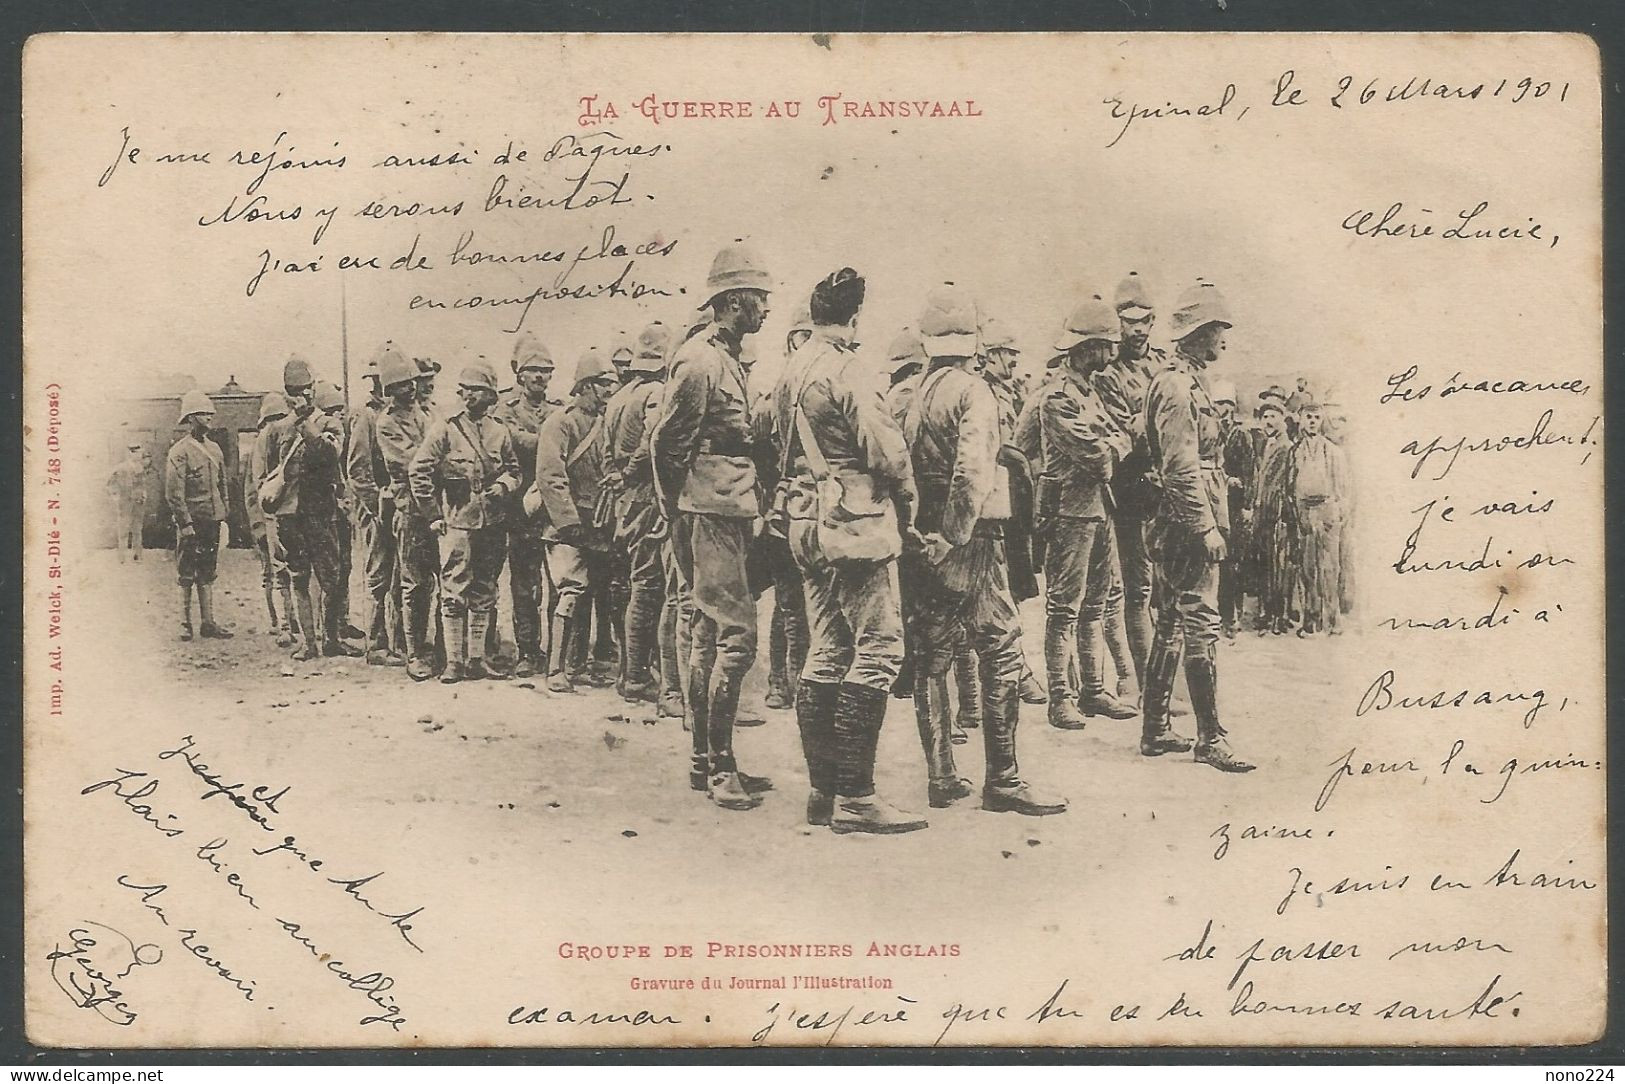 LA GUERRE AU TRANSVAAL
Epinal, le 26 Mars 1901
Chère Lucie,
Les vacances
approchent,
je vais
lundi ou
mardi à
Bussang,
pour la quin-
zaine.
Je suis en train
de passer mon
examen. J'espère que tu es en bonnes santé.
et que tu te
plais bien au collège.
Au revoir.
Georges
Je me réjouis aussi de Pâques.
Nous y serons bientôt.
J'ai eu de bonnes places
en composition.
GROUPE DE PRISONNIERS ANGLAIS
Gravure du Journal l'Illustration
Imp. Ad. Weick, St-Dié - N. 748 (Déposé)
delcampe.net
nono224